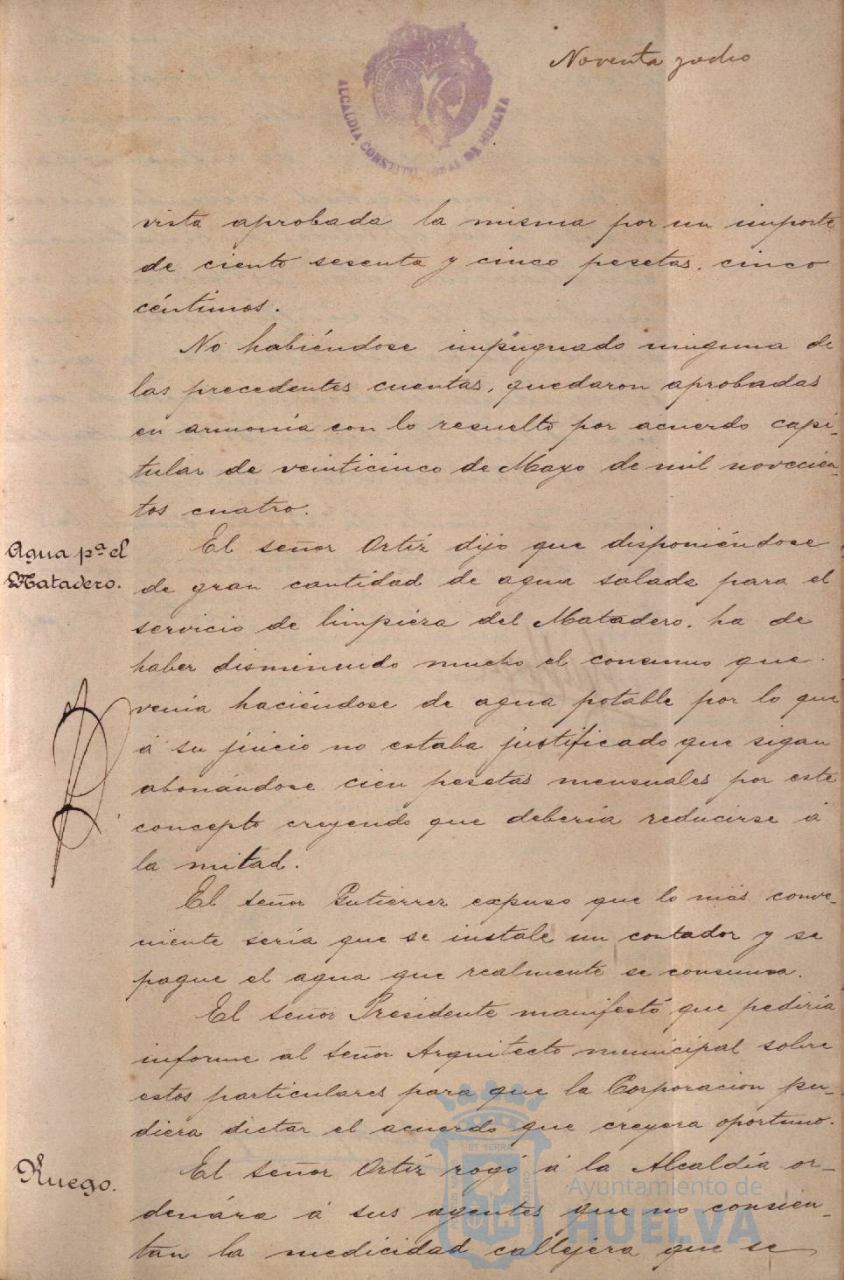 Noventa y ocho
ALCALDIA CONSTITUCIONAL DE HUELVA
vista aprobada la misma por un importe
de ciento sesenta y cinco pesetas, cinco
céntimos.
No habiéndose impugnado ninguna de
las precedentes cuentas, quedaron aprobadas
en armonía con lo resuelto por acuerdo capi-
tular de veinticinco de Mayo de mil novecien-
tos cuatro.
Agua pª el
Matadero.
El señor Ortíz dijo que disponiéndose
de gran cantidad de agua salada para el
servicio de limpiéza del Matadero, ha de
haber disminuido mucho el consumo que
venía haciéndose de agua potable por lo que
á su juicio no estaba justificado que sigan
abonándose cien pesetas mensuales por este
concepto creyendo que debería reducirse á
la mitad.
El señor Gutiérrez expuso que lo más conve-
niente sería que se instale un contador y se
pague el agua que realmente se consuma.
El señor Presidente manifestó que pediría
informe al señor Arquitecto municipal sobre
estos particulares para que la Corporación pu-
diera dictar el acuerdo que creyera oportuno.
Ruego.
El señor Ortíz rogó á la Alcaldía or-
denára á sus agentes que no consien-
tan la medicidad callejera que se
Ayuntamiento de
HUELVA